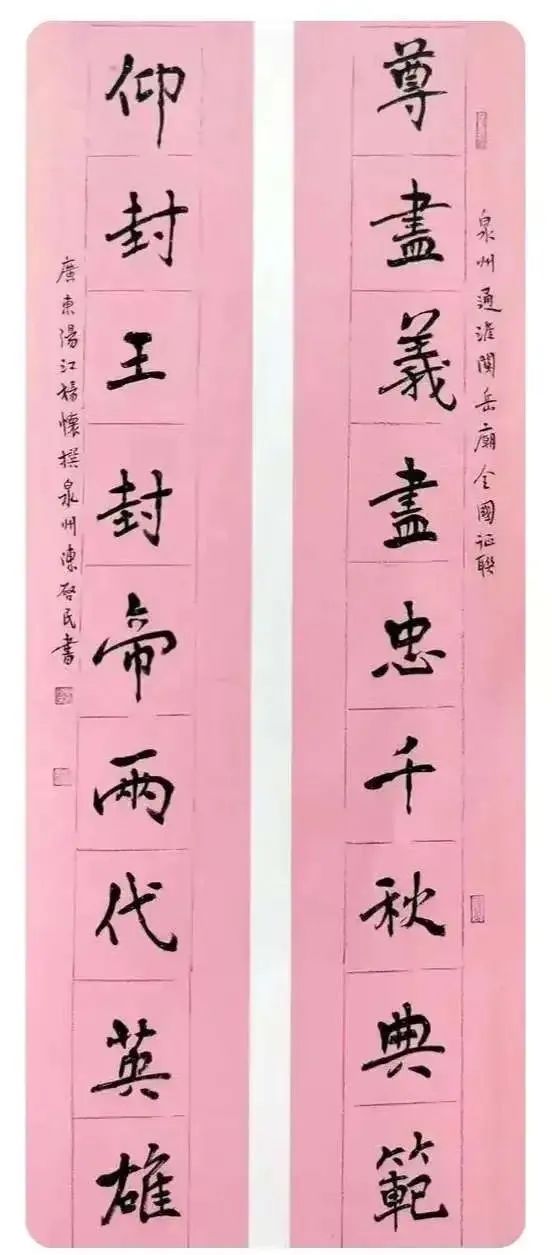 泉州通淮関岳廟全國证聯
尊盡義盡忠千秋典範
仰封王封帝兩代英雄
廣東陽江楊懷撰泉州陳啓民書